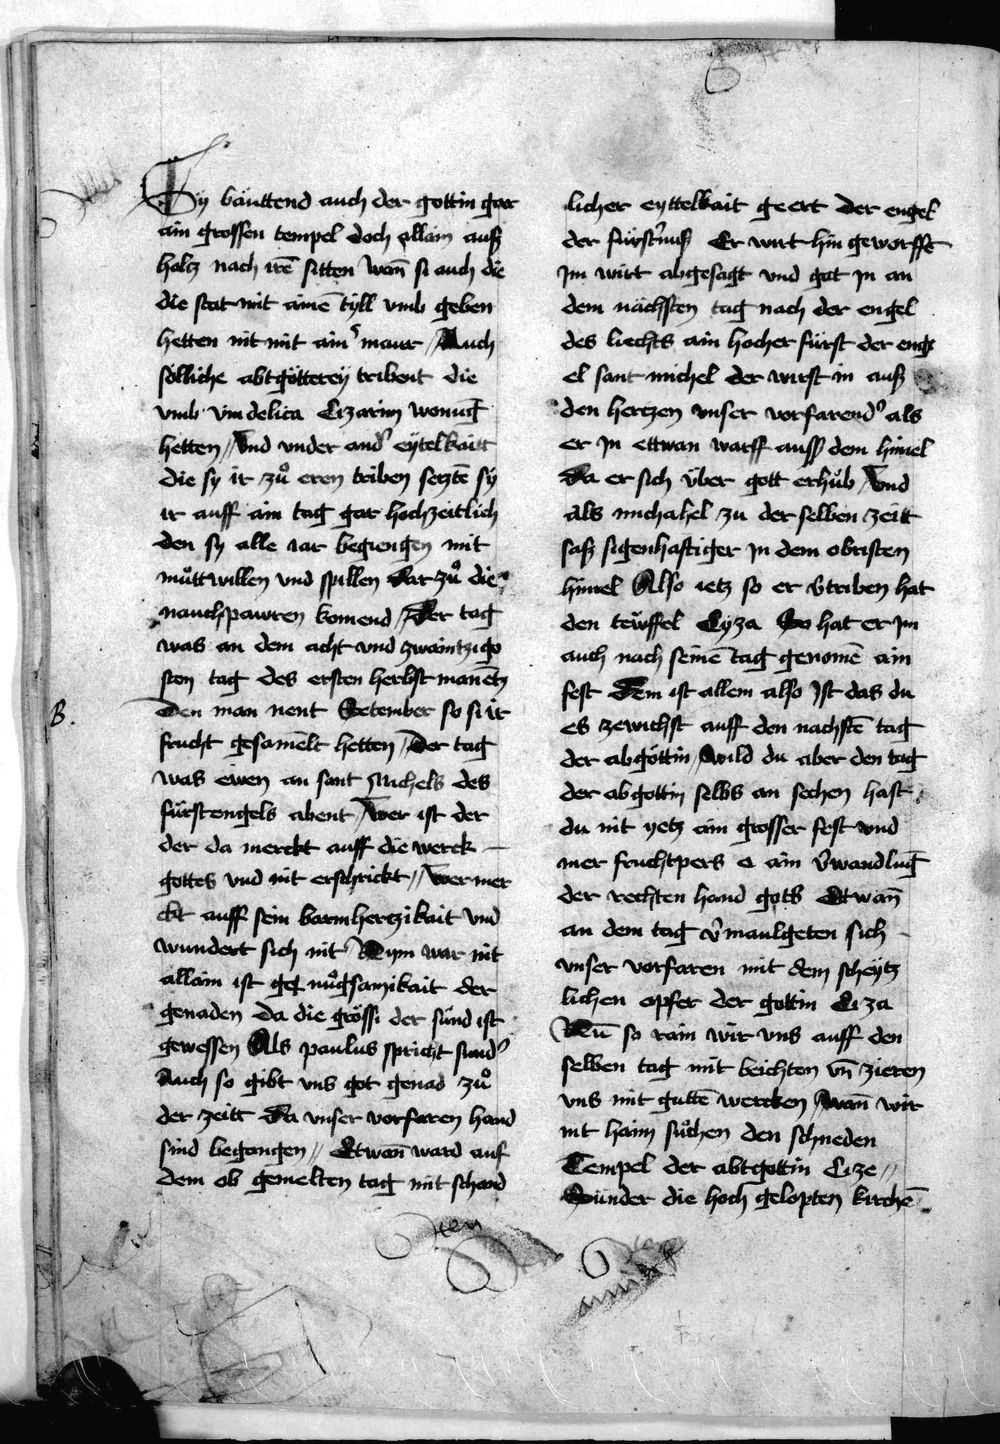 Sy bäuttend auch der gottin gar
ain grossen tempel doch allain auß
holtz nach irē sitten wan̄ si auch die
die stat mit ainē tyll vmb geben
hetten nit mit ainʳ maur // Auch
sölliche abtgötterey tribent die
vmb vindelica Cizarim wonuḡ
hetten // Vnd vnder andʳ eytelkaitt
die sy ir zuͦ eren triben setztē sy
ir auff ain tag gar hochzeitlich
den sy alle iar begiengen mit
muͦttwillen vnd spillen dar zuͦ die
nauchpawren komend // Der tag
was an dem acht vnd zwaintzigo
sten tag des ersten herbst manetz
den man nent Setember so si ir
frucht gesamelt hetten // Der tag
was ewen an sant Michels des
fürstengels abent // Wer ist der
der da merckt auff die werck
gottes vnd nit erschrickt // wer mer
ckt auff sein barmhertzikait vnd
wundert sich nit Nym war nit
allain ist gnuͦgsamikait der
genaden da die grössi der sünd ist
gewessen Als paulus spricht sundʳ
Auch so gibt vns got genad zuͦ
der zeitt da vnser vorfaren hand
sind begangen // Etwan̄ ward auf
dem ob gemelten tag mit schand
licher eyttelkait geert der engel
der fürstʳnuß Er wirt hin geworffē
im wirt abgesagt vnd gat in an
dem nächsten tag nach der engel
des liechts ain hocher fürst der enge
el sant michel der wirfft in auß
den hertzen vnser vorfarendʳ als
er in ettwan warff auss dem himel
da er sich über gott erhuͦb // Vnd
als michahel zu der selben zeitt
saß sigenhaftiger in dem obristen
himel Also ietz so er v̄triben hat
den tewffel Cyza So hat er im
auch nach seinē tag genomē ain
fest Dem ist allem also Ist das du
es zewichst auff den nachstē tag
der abgöttin // wild du aber den tag
der abgottin selbs an sechen hast
du nit yetz ain grosser fest vnd
mer fruchtpers e ain v̄wandluḡ
der rechten hand gots Etwan̄
an dem tag v̄maulgeten sich
vnser vorfaren mit dem scheytz
lichen opfer der gottin Ciza
Nū so rain wir vns auff den
selben tag mit beichten vn̄ zieren
vns mit guttē wercken // wan̄ wir
nit haim suͦchen den schneden
Tempel der abtgottin Cize //
Sünder die hoch gelopten kirchē